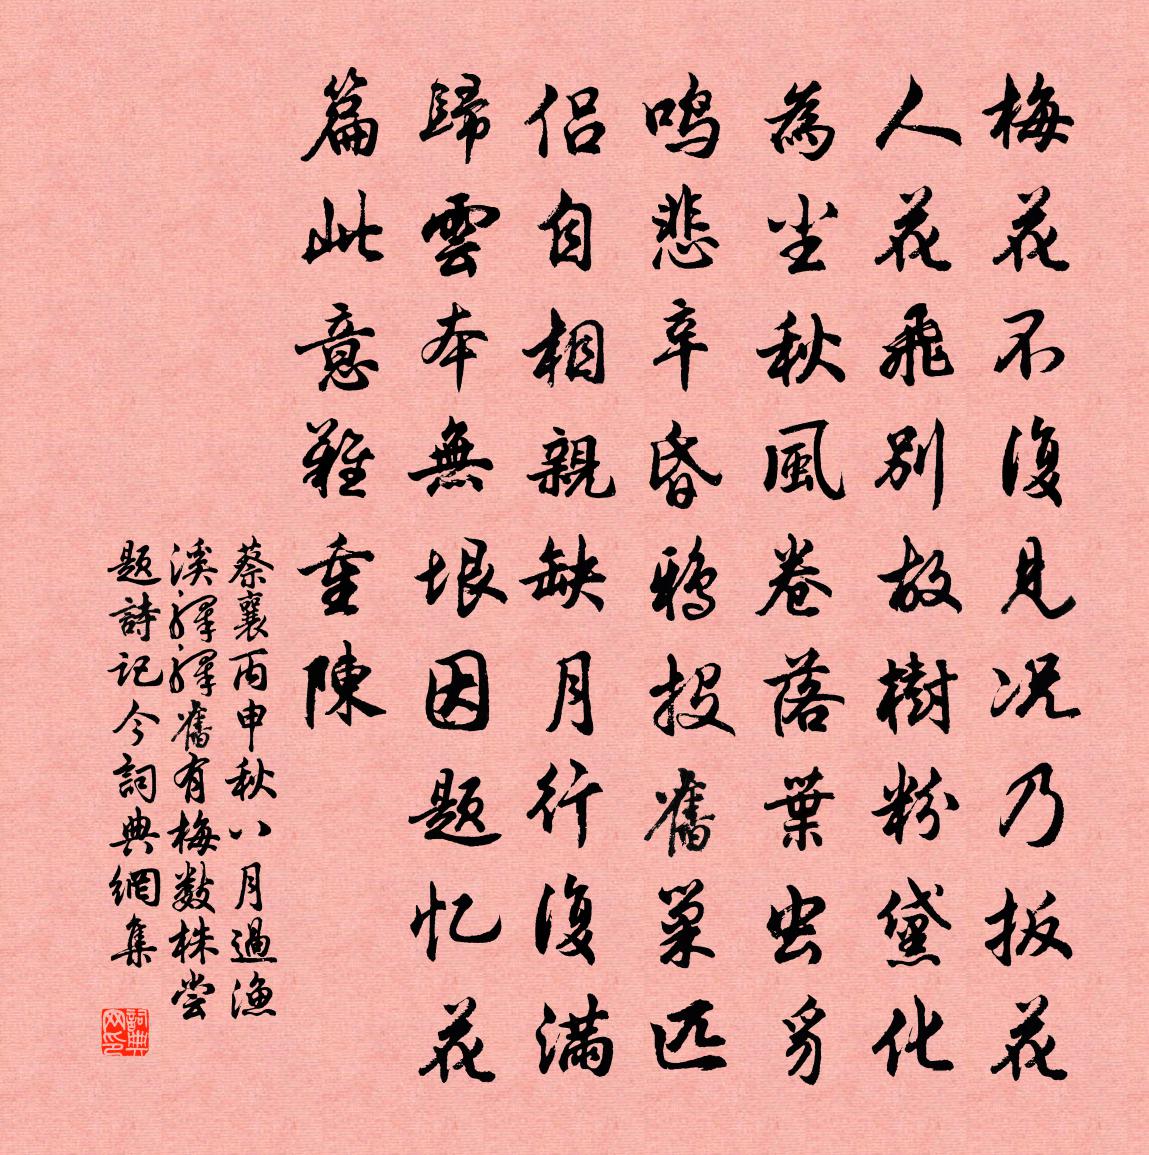 梅花不復見况乃扳花
人花飛別故樹粉黛化
為尘秋風卷落葉虫豸
鸣悲辛昏鸦投舊巢匹
侣自相親缺月行復滿
歸雲本無垠因题忆花
篇此意難重陳
蔡襄丙申秋八月過漁
溪驛驛舊有梅数株尝
题詩记今詞典網集
詞典网印